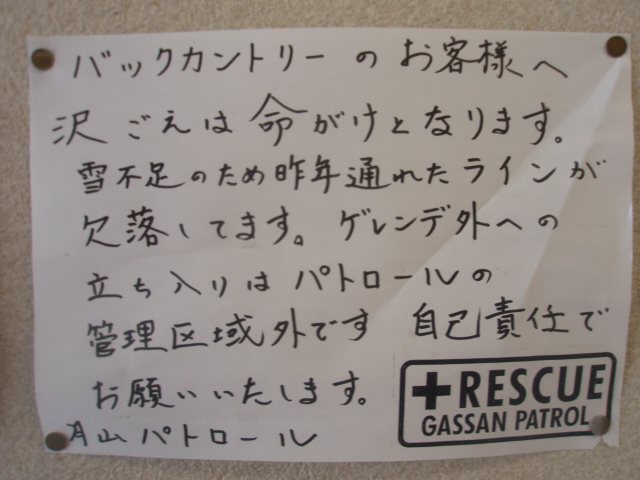 バックカントリーのお客様へ
沢ごえは命がけとなります。
雪不足のため昨年通れたラインが
欠落してます。ゲレンデ外への
立ち入りはパトロールの
管理区域外です 自己責任で
お願いいたします。
月山パトロール
+RESCUE
GASSAN PATROL